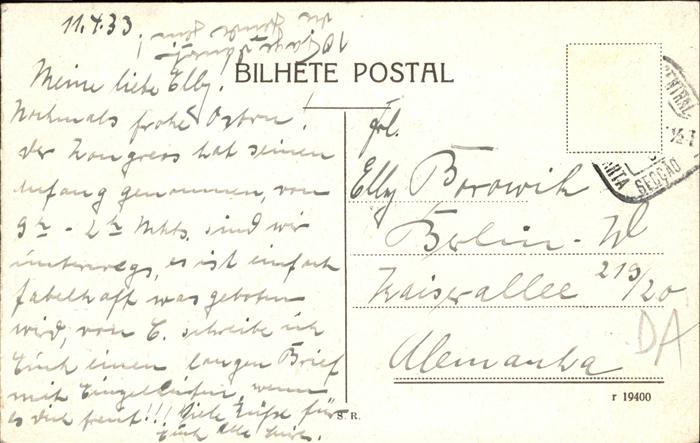 11.4.33
BILHETE POSTAL
Meine liebe Elly!
Nochmals frohe Ostern!
Der Kongress hat seinen
Anfang genommen, von
9 - 2 Nchts. sind wir
unterwegs, es ist einfach
fabelhaft was geboten
wird, von C. schreibe ich
Euch einen langen Brief
mit Einzelheiten, wenn
es dich freut!!! Viele Küße für
Euch alle
Frl.
Elly Borowik
Berlin-W
Kaiserallee 219/20
Alemanha
DA
S. R.
r 19400
CENTRAL
SECÇÃO